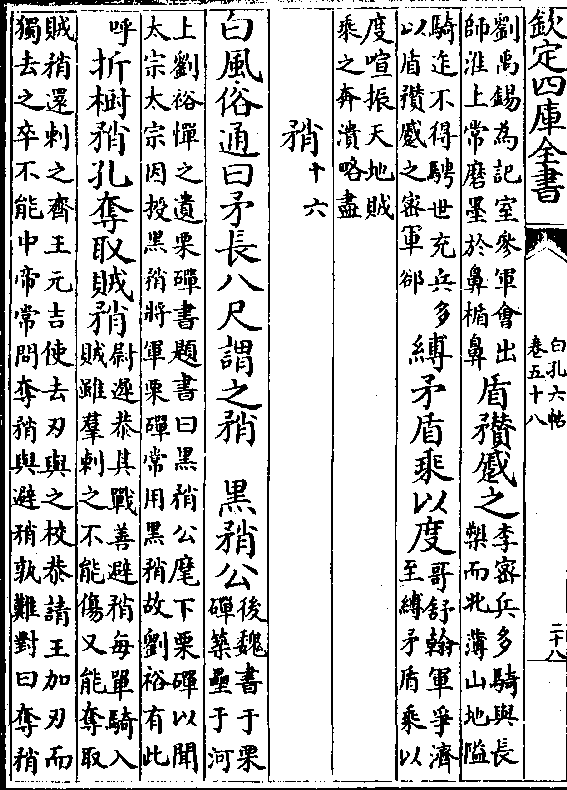 欽定四庫全書
白孔六帖
卷五十八
二十八
劉禹錫為記室參軍會出
師淮上常磨墨於鼻楯鼻
盾䂎慼之
李密兵多騎與長
槊而北薄山地隘
騎迮不得騁世充兵多
以盾䂎慼之密軍郤
縛矛盾乘以度
哥舒翰軍爭濟
至縛矛盾乘以
度喧振天地賊
乘之奔潰略盡
矟十六
白風俗通曰矛長八尺謂之矟 黒矟公
後魏書于栗
磾築壘于河
上劉裕憚之遺栗磾書題書曰黑矟公麾下栗磾以聞
太宗太宗因投黑矟將軍栗磾常用黑矟故劉裕有此
呼
折樹矟孔奪取賊矟
尉遲恭其戰善避矟每單騎入
賊雖羣刺之不能傷又能奪取
賊矟還刺之齊王元吉使去刃與之校恭請王加刃而
獨去之卒不能中帝常問奪矟與避矟孰難對曰奪矟